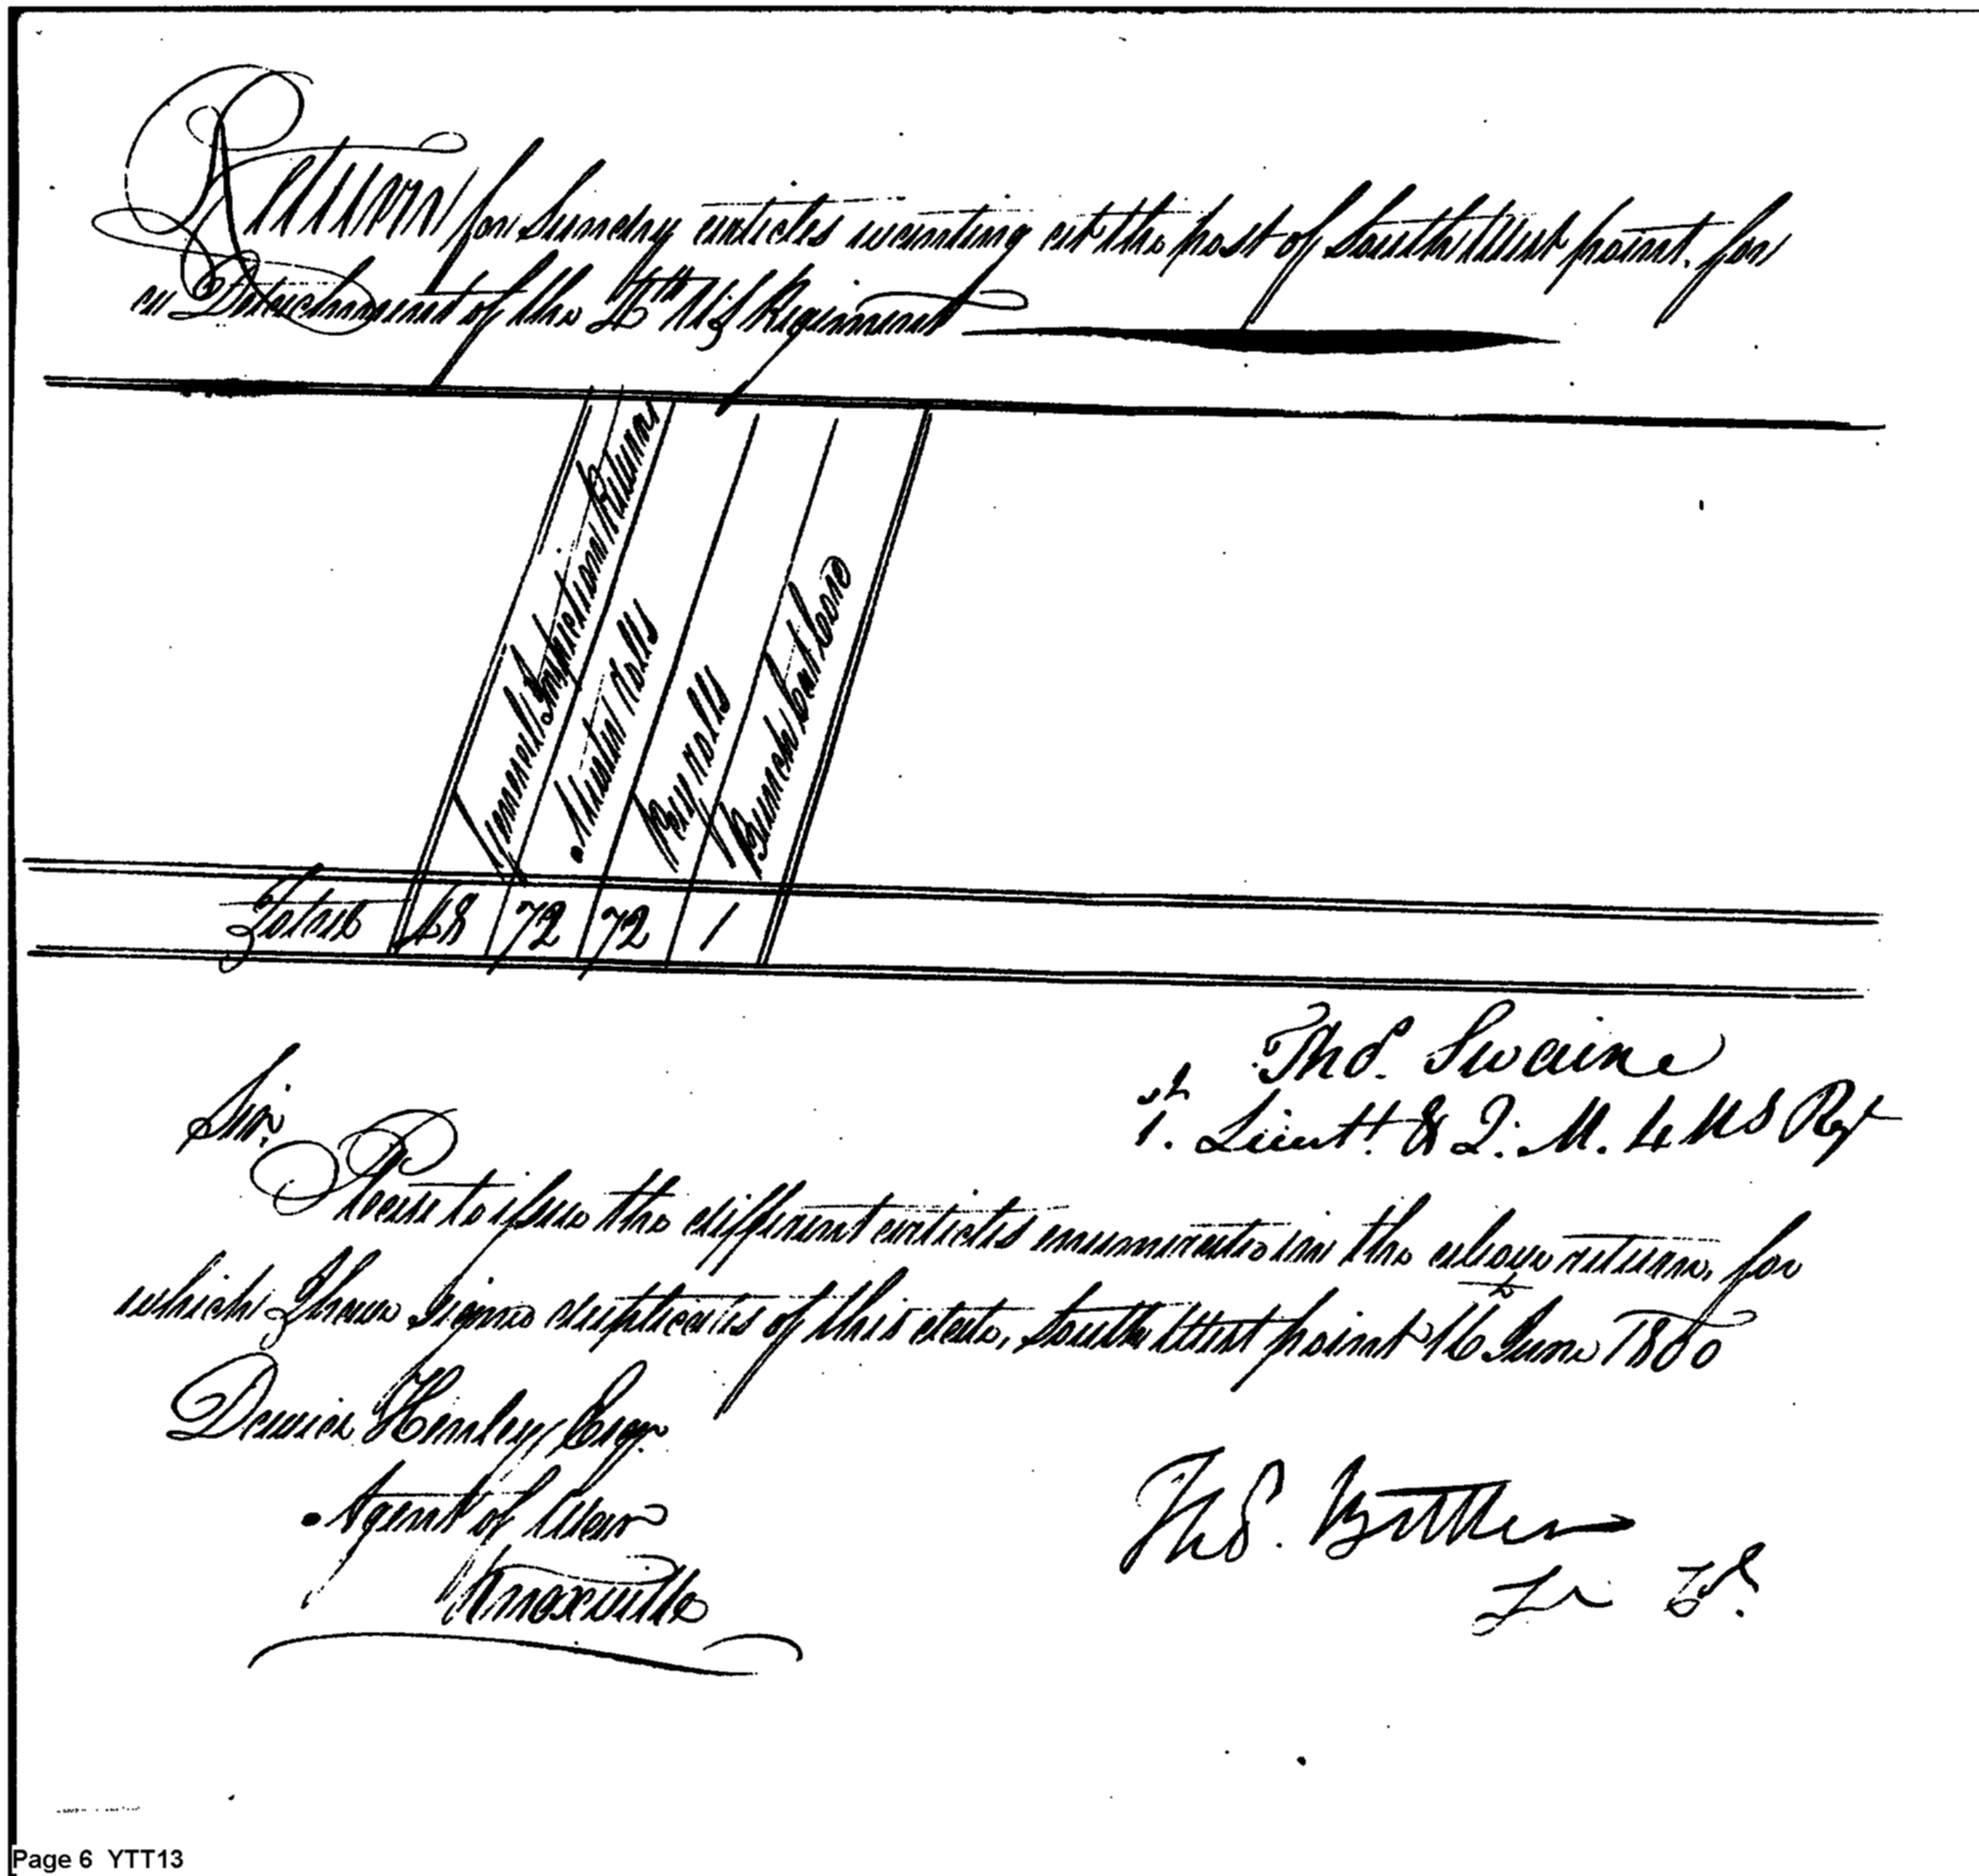 Return for Sundry articles wanting at the post of South West point, for
a Detachment of the 4th U S Regiment
General Inspection Returns
Muster Rolls
Pay rolls
Total 48 72 72 1
Thos. Swaine
1st. Lieutt. & Q. M. 4 US Regt
Sir.
Please to issue the different articles enumerated in the above return, for
which I have signed duplicates of this date, South West point 16th June 1800
David Henley Esqr.
Agent of War
Knoxville
Ths. Butler
Lt Cl.
Page 6 YTT13